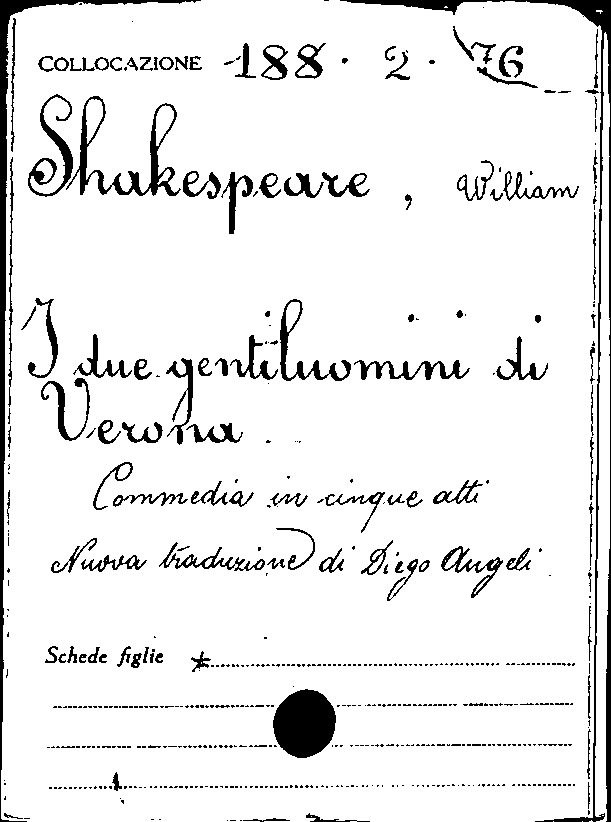 COLLOCAZIONE 188 · 2 · 76
Shakespeare, William
I due gentiluomini di
Verona.
Commedia in cinque atti
Nuova traduzione di Diego Angeli
Schede figlie *